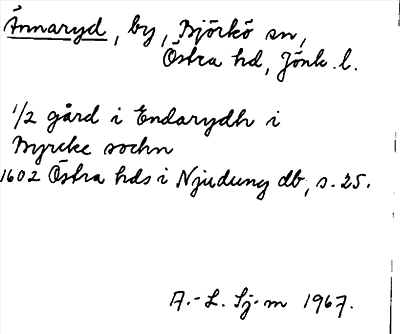 Ännaryd, by, Björkö sn,
Östra hd, Jönk. l.
1/2 gård i Endarydh i
Byrcke sochn
1602 Östra hds i Njudung db, s. 25.
A.-L. Sj-m 1967.